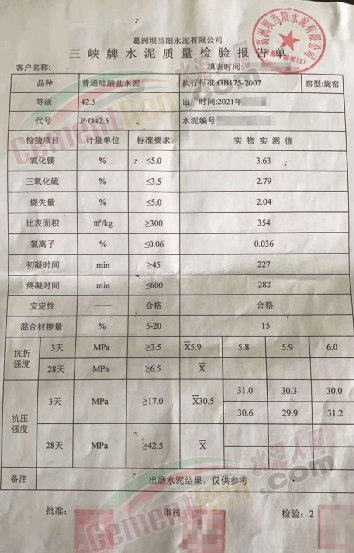 葛洲坝当阳水泥有限公司
三峡牌水泥质量检验报告单
客户名称: 填表时间:
品种 普通硅酸盐水泥 执行标准:GB175-2007 窑型:旋窑
等级 42.5 出厂时间:2021年
代号 P·O42.5 水泥编号
检验项目 计量单位 标准要求 实物实测值
氧化镁 % ≤5.0 3.63
三氧化硫 % ≤3.5 2.79
烧失量 % ≤5.0 2.04
比表面积 ㎡/kg ≥300 354
氯离子 % ≤0.06 0.036
初凝时间 min ≥45 227
终凝时间 min ≤600 282
安定性 —— 合格 合格
混合材掺量 % 5-20 15
抗折强度 3天 MPa ≥3.5 X̄5.9 5.8 5.9 6.0
28天 MPa ≥6.5 X̄
抗压强度 3天 MPa ≥17.0 X̄30.5 31.0 30.3 30.0
30.6 29.9 31.2
28天 MPa ≥42.5 X̄
备注 出磨水泥结果，仅供参考
批准: 审核 检验: 2
CementRen 水泥人网